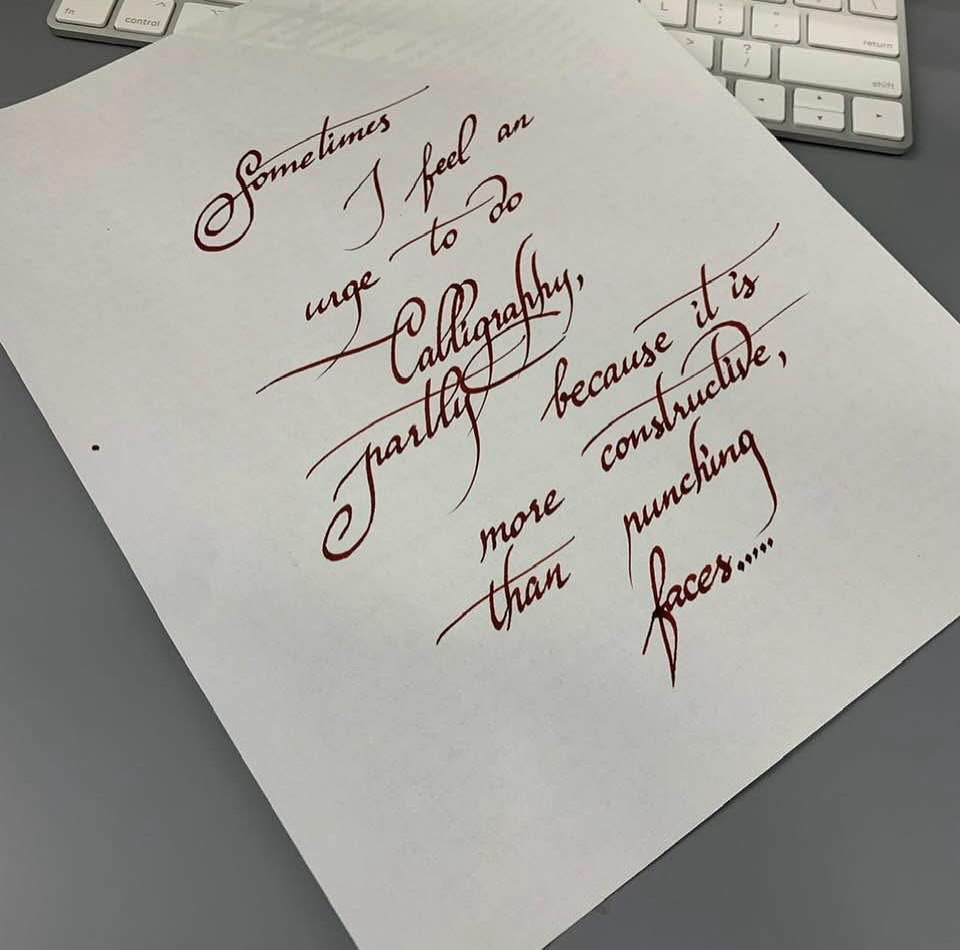 fn
control
L
:
;
"
'
return
>
?
/
shift
Sometimes
I feel an
urge to do
Calligraphy,
partly because it is
more constructive,
than punching
faces.....